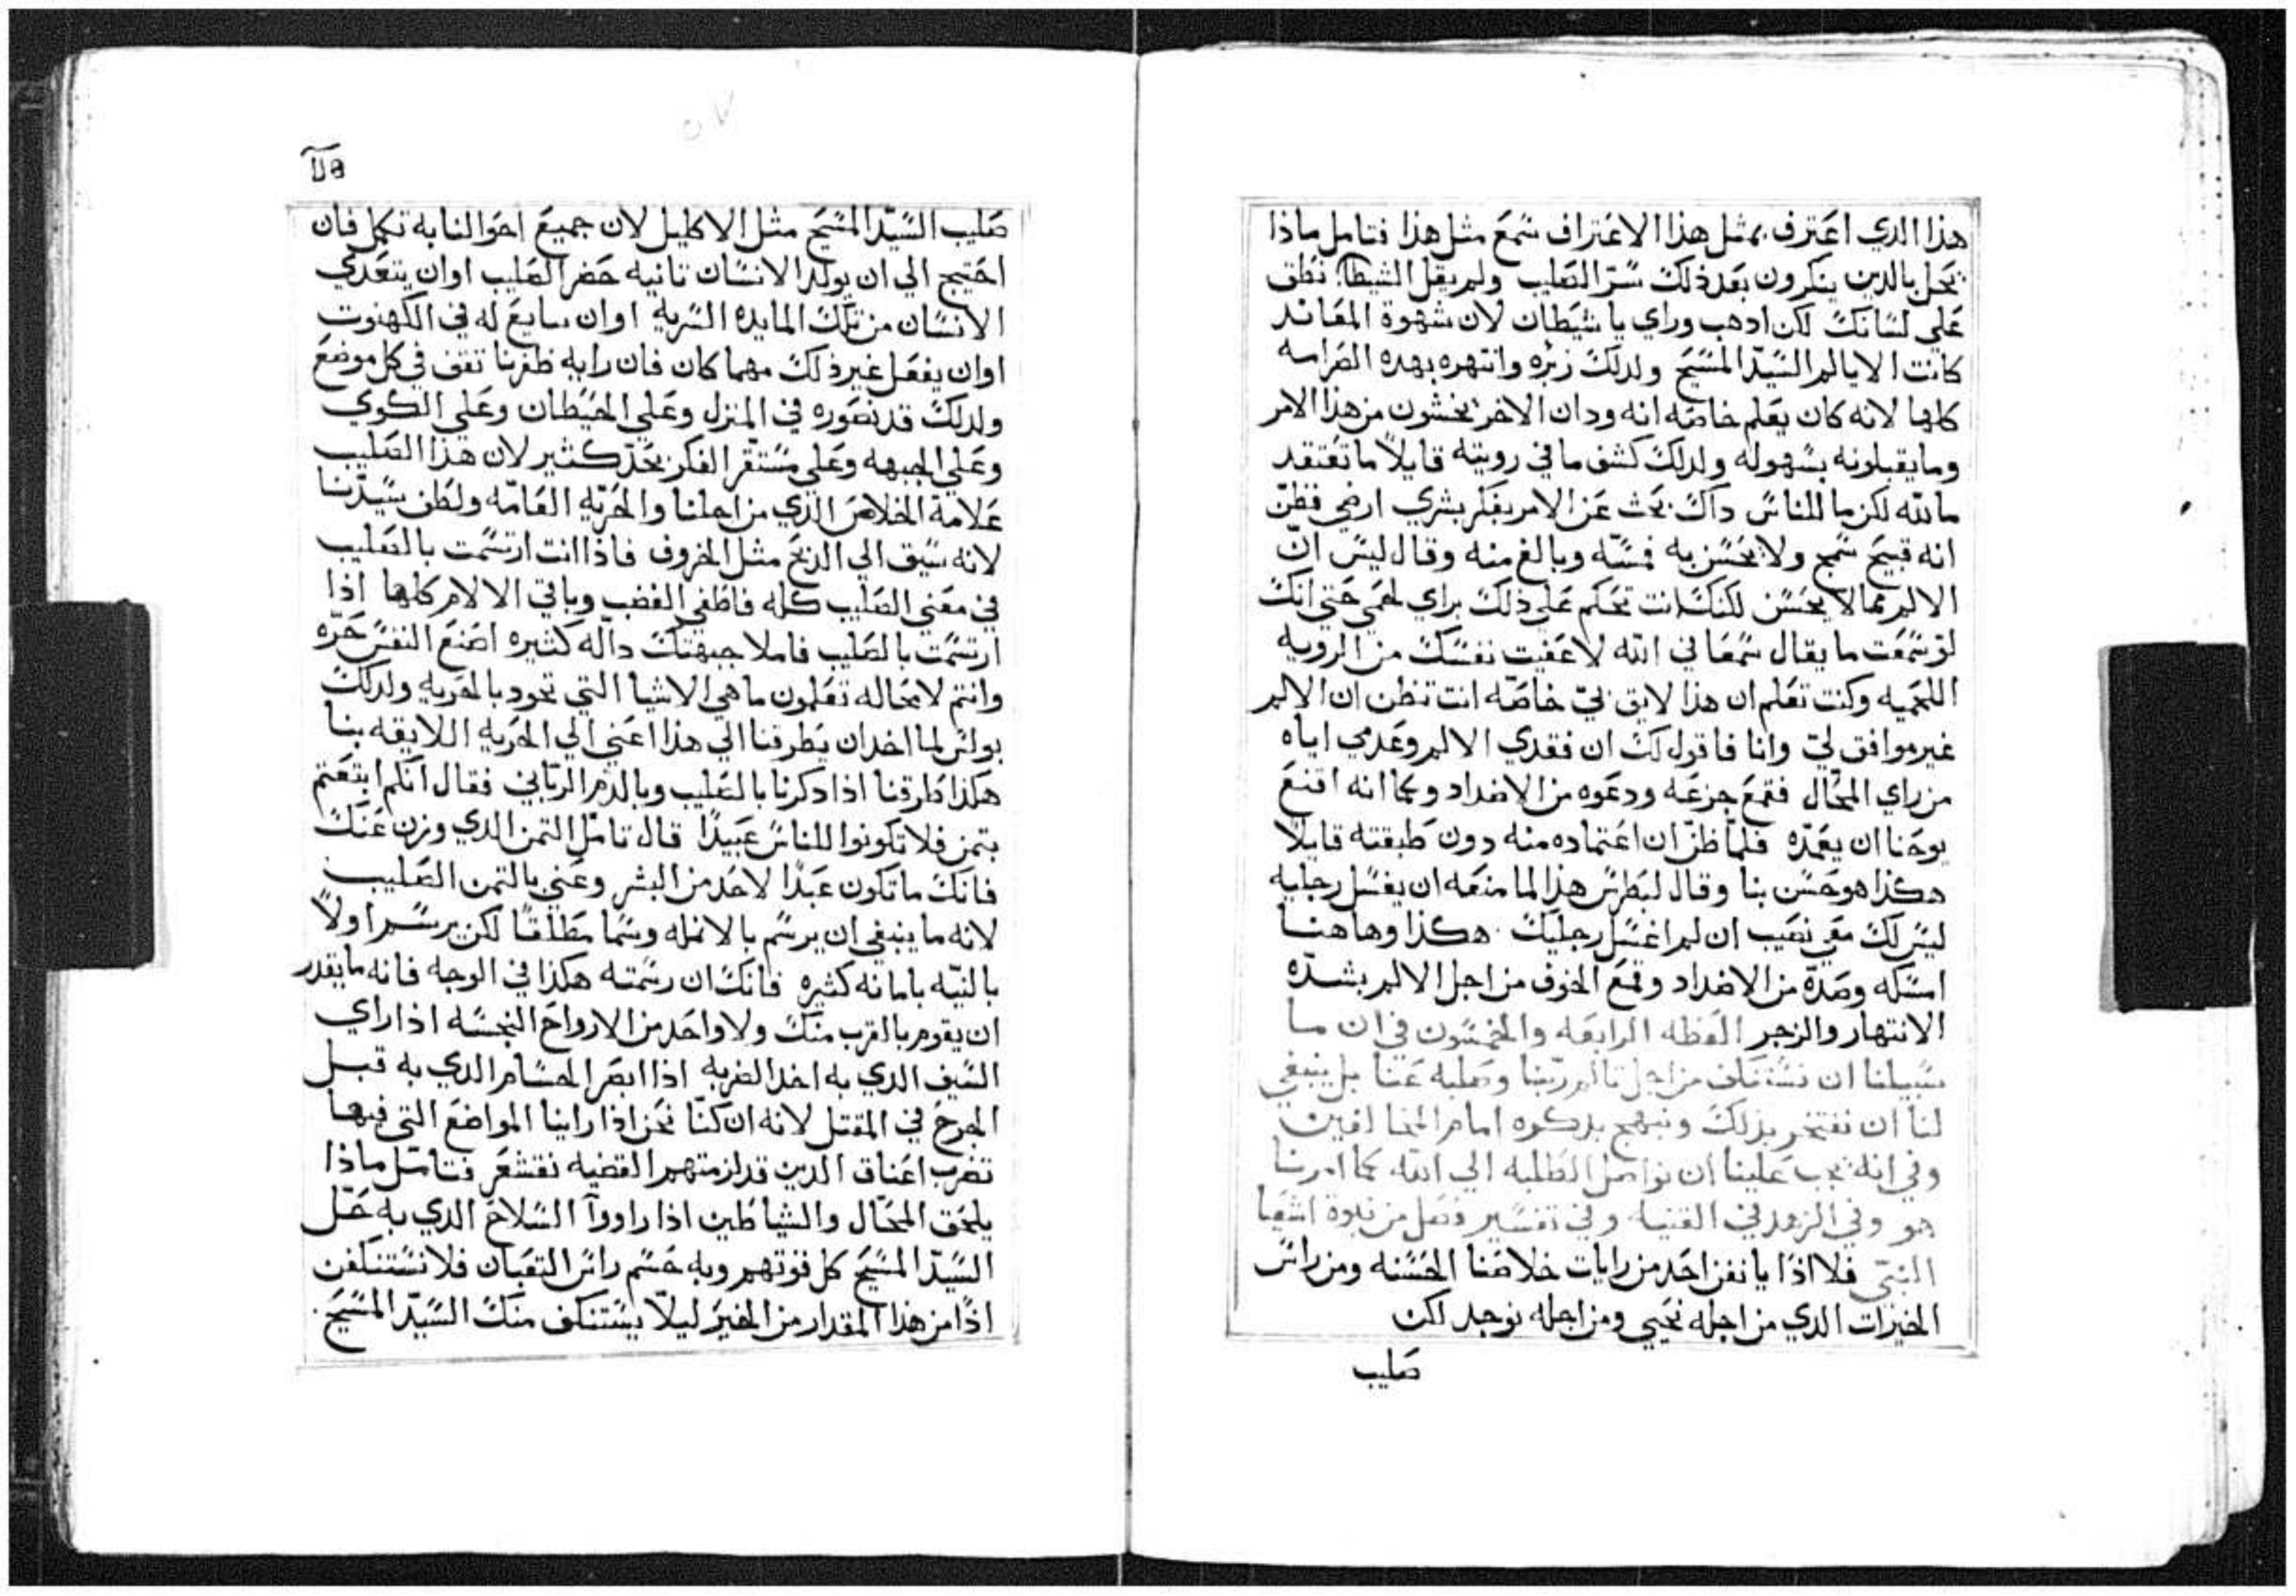 هذا الدي اعترف بمثل هذا الاعتراف سمع مثل هذا فتامل ماذا
يحل بالدين ينكرون بعد ذلك سر الصليب ولم يقل الشيطان نطق
على لسانك لكن ادهب وراي يا شيطان لان شهوة المعاند
كانت الا يالم السيد المسيح ولدلك زبره وانتهره بهده الصرامه
كلها لانه كان يعلم خاصه انه ودان الاخر يخشون من هذا الامر
وما يقبلونه بسهوله ولدلك كشف ما في رويته قايلاً ما تعتقد
ما لله لكن ما للناس داك بحث عن الامر بفكر بشري ارضي فظن
انه قبيح سمج ولا يحسن به فمسه وبالغ منه وقال ليس ان
الالم مما لا يحسن لكنك انت تحكم على ذلك براي لحمي حتي انك
لو سمعت ما يقال سمعا في الله لاعفيت نفسك من الرويه
اللحميه وكنت تعلم ان هذا لايق بي خاصه انت تظن ان الالم
غير موافق لي وانا فاقول لك ان فقدي الالم وعدمي اياه
من راي المحال فقمع جزعه ودعوه من الاضداد وكما انه اقنع
يوحنا ان يعمده فلما ظن ان اعتماده منه دون طبقته قايلاً
هكذا هو حسن بنا وقال لبطرس هذا لما منعه ان يغسل رجليه
ليس لك معي نصيب ان لم اغسل رجليك هكذا وهاهنا
امسكه وصده من الاضداد وقمع الخوف من اجل الالم بشده
الانتهار والزجر العظه الرابعه والخمسون في ان ما
سبيلنا ان نستنكف من اجل تالم ربنا وصلبه عنا بل ينبغي
لنا ان نفتخر بذلك ونبهج بدكره امام المخالفين
وفي انه يجب علينا ان نواصل الطلبه الي الله كما امرنا
هو وفي الزهد في القنيه وفي تفسير فصل من نبوة اشعيا
النبي فلا اذا يا نفر احد من رايات خلاصنا الحسنه ومن راس
الخيرات الدي من اجله نحيي ومن اجله نوجد لكن
صليب
صليب السيد المسيح مثل الاكليل لان جميع احوالنا به تكمل فان
احتيج الي ان يولد الانسان تانيه حضر الصليب او ان يتغدي
الانسان من تلك المايده السريه او ان يبايع له في الكهنوت
او ان يفعل غير ذلك مهما كان فان رايه ظفرنا تقف في كل موضع
ولدلك قد نصوره في المنزل وعلي الحيطان وعلي الكوي
وعلي الجبهه وعلي مستقر الفكر بحد كثير لان هذا الصليب
علامة الخلاص الدي من اجلنا والحريه العامه ولطف سيدنا
لانه سيق الي الدبح مثل الخروف فاذا انت ارتسمت بالصليب
في معني الصليب كله فاطفي الغضب وباقي الالام كلها اذا
ارتسمت بالصليب فاملا جبهتك داله كثيره اصنع النفس حره
وانتم لا محاله تعلمون ما هي الاشيا التي تجود بالحريه ولدلك
بولس لما اخد ان يطرقنا الي هذا اعني الي الحريه اللايقه بنا
هكذا طرقنا اذا دكرنا بالصليب وبالدم الرباني فقال انكم ابتعتم
بتمن فلا تكونوا للناس عبيدًا قال تامل التمن الدي وزن عنك
فانك ما تكون عبدًا لاحد من البشر وعني بالتمن الصليب
لانه ما ينبغي ان يرسم بالانمله وسما مطلقا لكن يرسم اولاً
بالنيه بامانه كثيره فانك ان رسمته هكذا في الوجه فانه ما يقدر
ان يقوم بالقرب منك ولا واحد من الارواح النجسه اذا راي
السيف الدي به اخد الضربه اذا ابصر الحسام الدي به قبل
الجرح في المقتل لانه ان كنا نحن اذا راينا المواضع التي فيها
تضرب اعناق الدين قد لزمتهم القضيه نقشعر فتامل ماذا
يلحق المحال والشياطين اذا راووا السلاح الدي به حل
السيد المسيح كل قوتهم وبه حسم راس التعبان فلا نستنكفن
اذًا من هذا المقدار من الخير ليلا يستنكف منك السيد المسيح